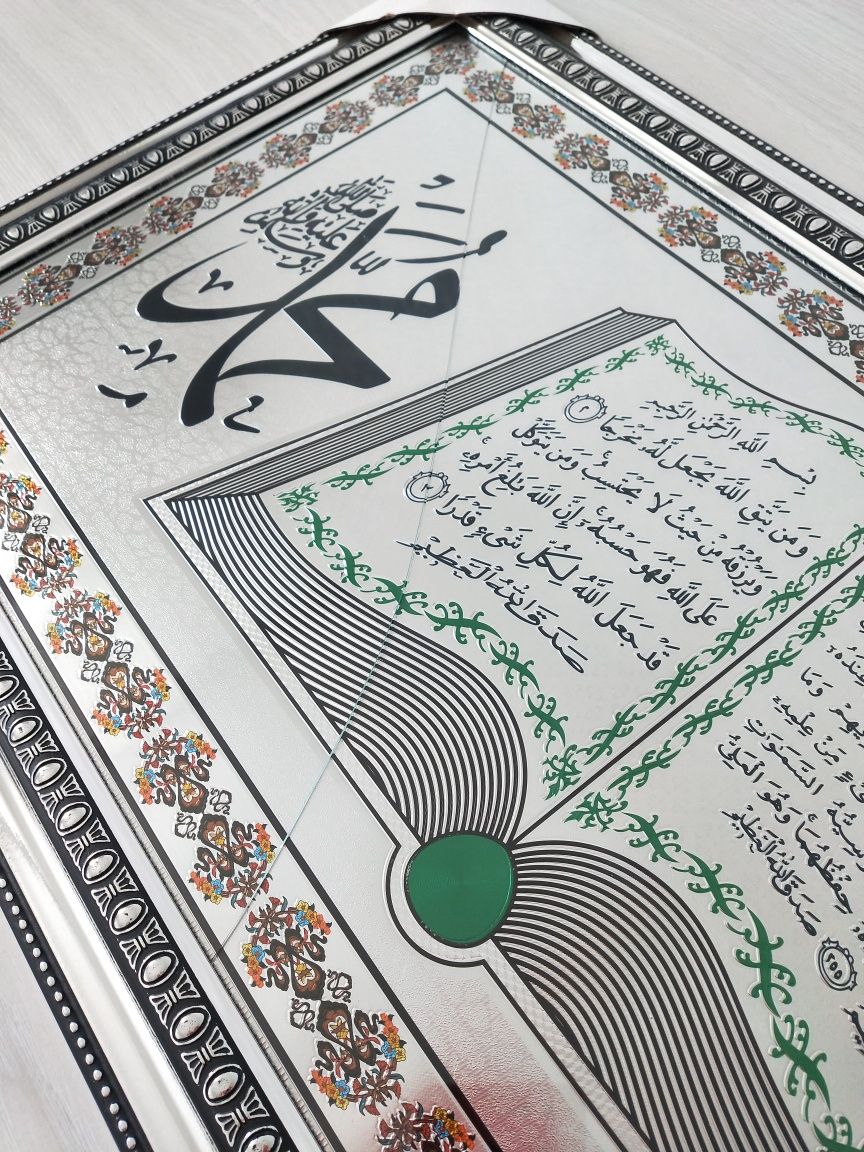 محمد
بِسْمِ اللَّهِ الرَّحْمٰنِ الرَّحِيمِ
وَمَنْ يَتَّقِ اللَّهَ يَجْعَلْ لَهُ مَخْرَجًا ٢
وَيَرْزُقْهُ مِنْ حَيْثُ لَا يَحْتَسِبُ وَمَنْ يَتَوَكَّلْ
عَلَى اللَّهِ فَهُوَ حَسْبُهُ إِنَّ اللَّهَ بَالِغُ أَمْرِهِ
قَدْ جَعَلَ اللَّهُ لِكُلِّ شَيْءٍ قَدْرًا ٣
صَدَقَ اللهُ الْعَظِيمُ
وَمَا
مِنْ عِلْمِهِ
السَّمٰوَاتِ
حِفْظُهُمَا وَهُوَ الْعَلِيُّ
٢٥٥
صَدَقَ اللهُ الْعَظِيمُ